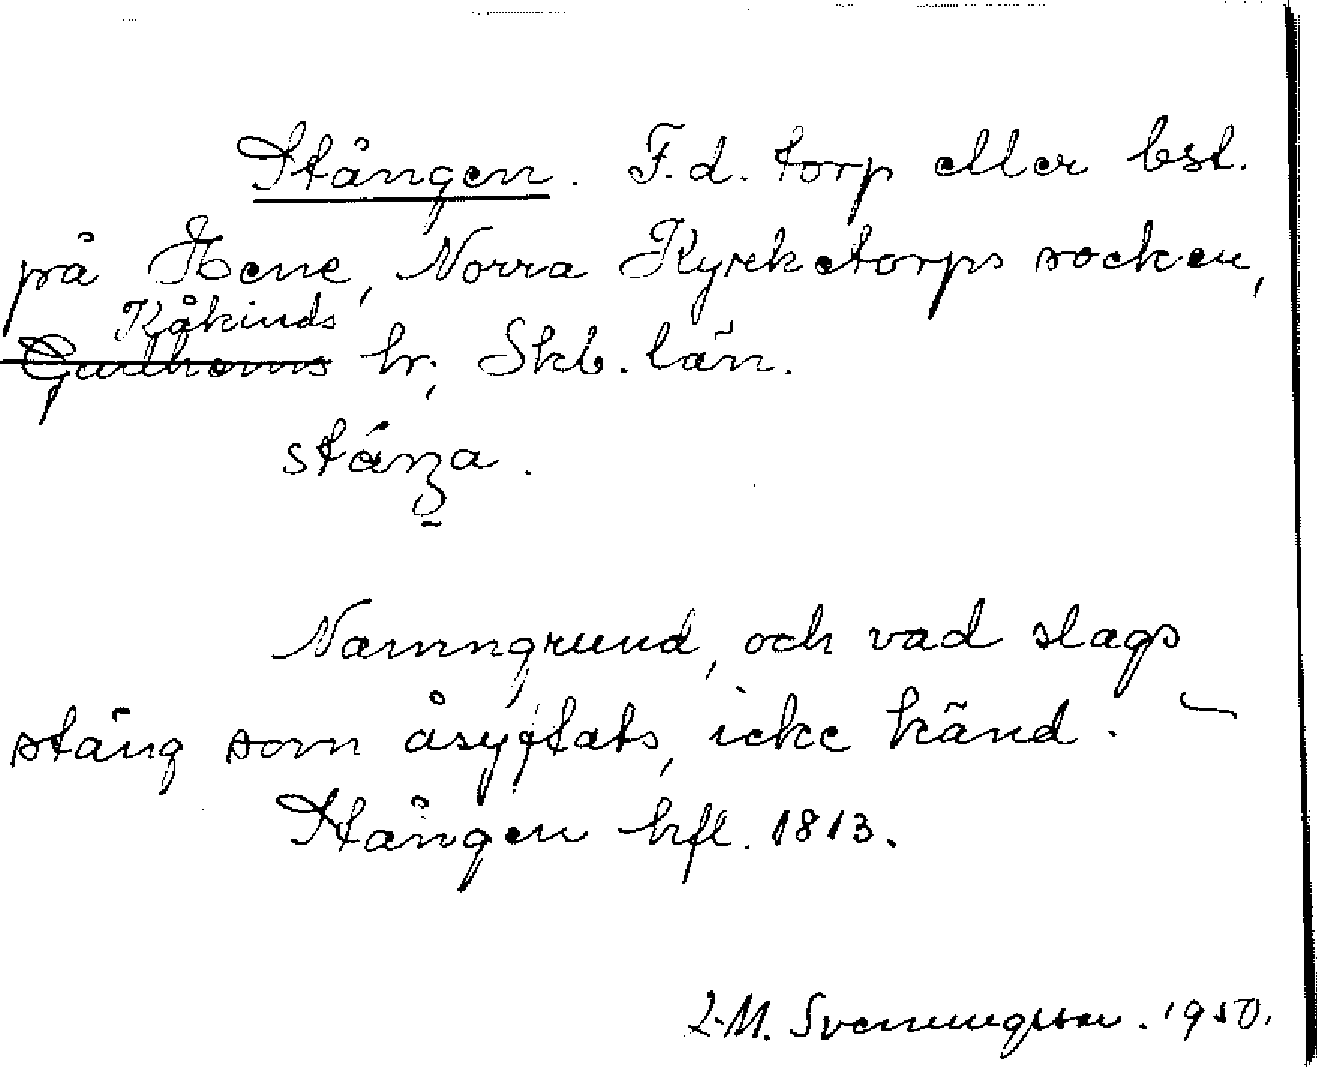 Stången. F.d. torp eller bst.
på Hene, Norra Kyrketorps socken,
Kåkinds
Gudhems hr, Skb. län.
Namngrund, och vad slags
stång som åsyftats, icke känd. —
Stången hfl. 1813.
L.M. Svenungsson. 1950.